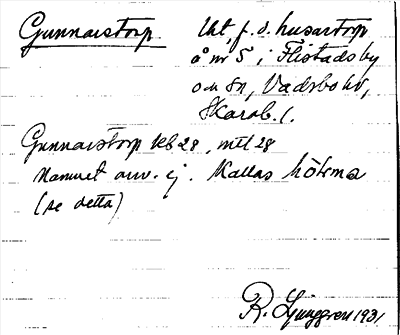 Gunnarstorp. Lht, f. d. husartorp
å nr 5 i Flistads by
o sn, Vadsbo hd,
Skarab. l.
Gunnarstorp kb 28, mtl 28
Namnet anv. ej. Kallas
(se detta)
R. Ljunggren 1931